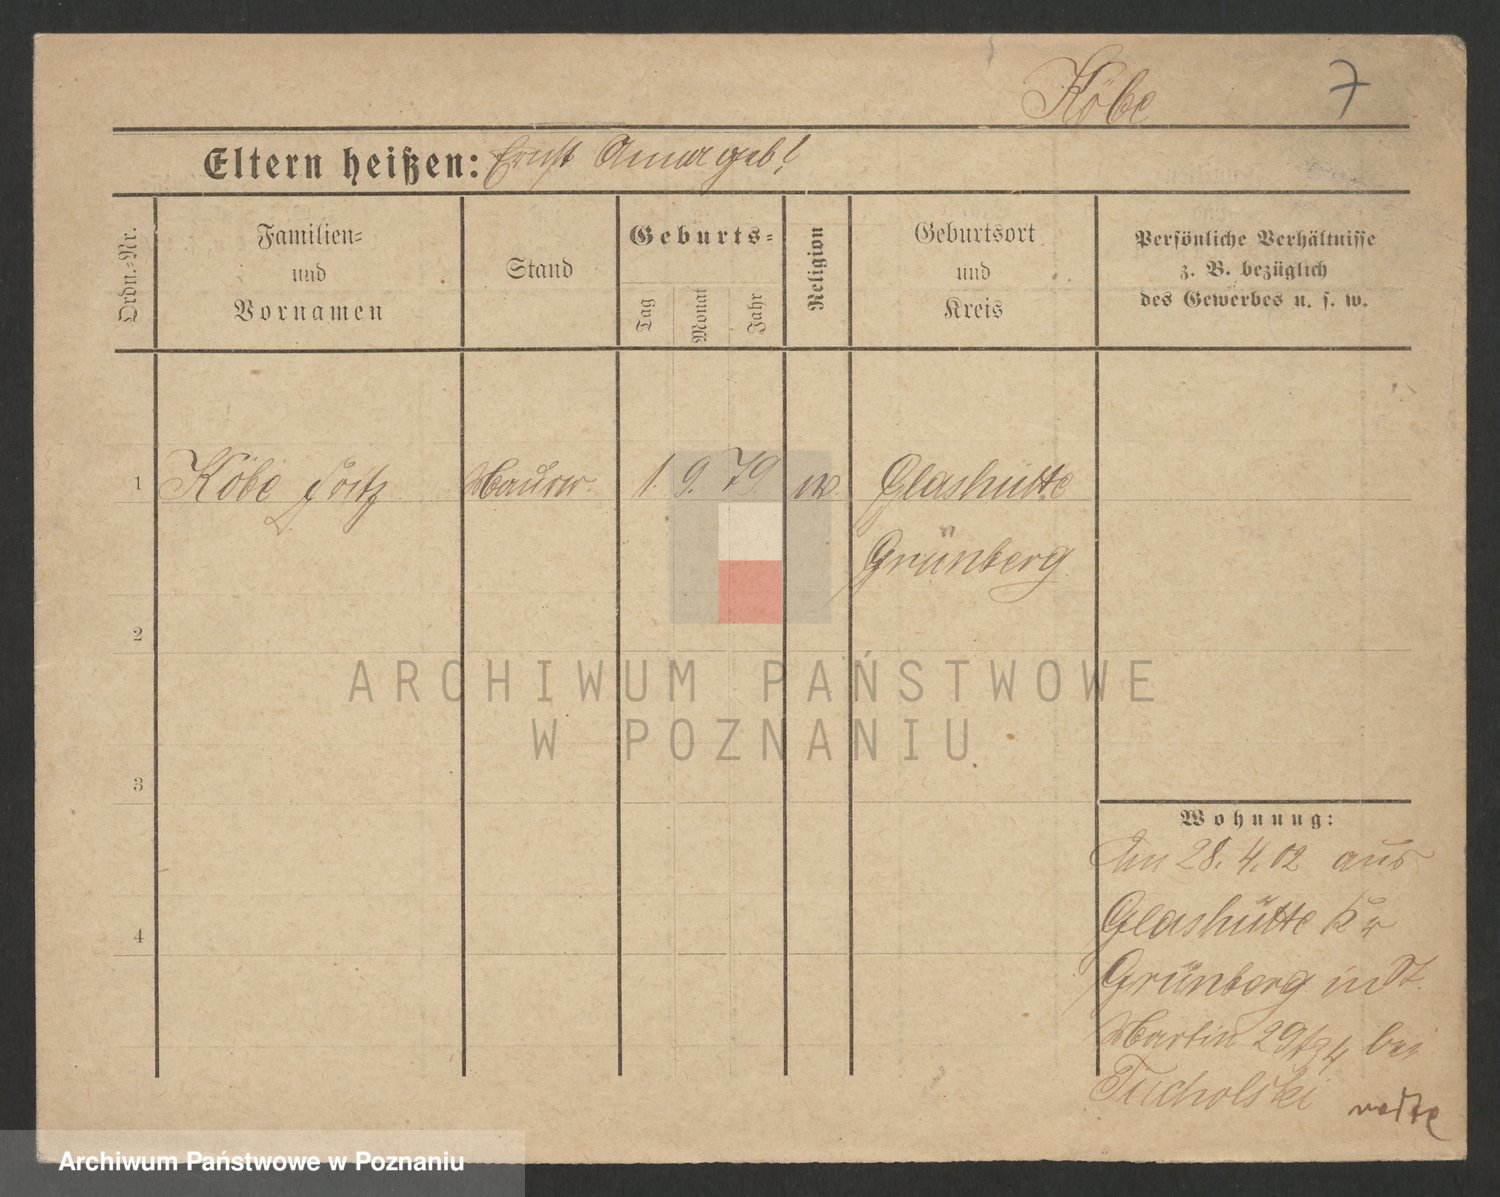 Köbe 7
Eltern heißen: Ernst Anna geb?
Ordn.-Nr.
Familien-
und
Vornamen
Stand
Geburts-
Tag
Monat
Jahr
Religion
Geburtsort
und
Kreis
Persönliche Verhältnisse
z. B. bezüglich
des Gewerbes u. s. w.
1 Köbe Fritz Maurer 1. 9. 79. ev. Glashütte
Grünberg
2
3
4
ARCHIWUM PAŃSTWOWE
W POZNANIU
Wohnung:
Am 28. 4. 02 aus
Glashütte Kr
Grünberg in St.
Martin 29/34 bei
Tucholski
Archiwum Państwowe w Poznaniu